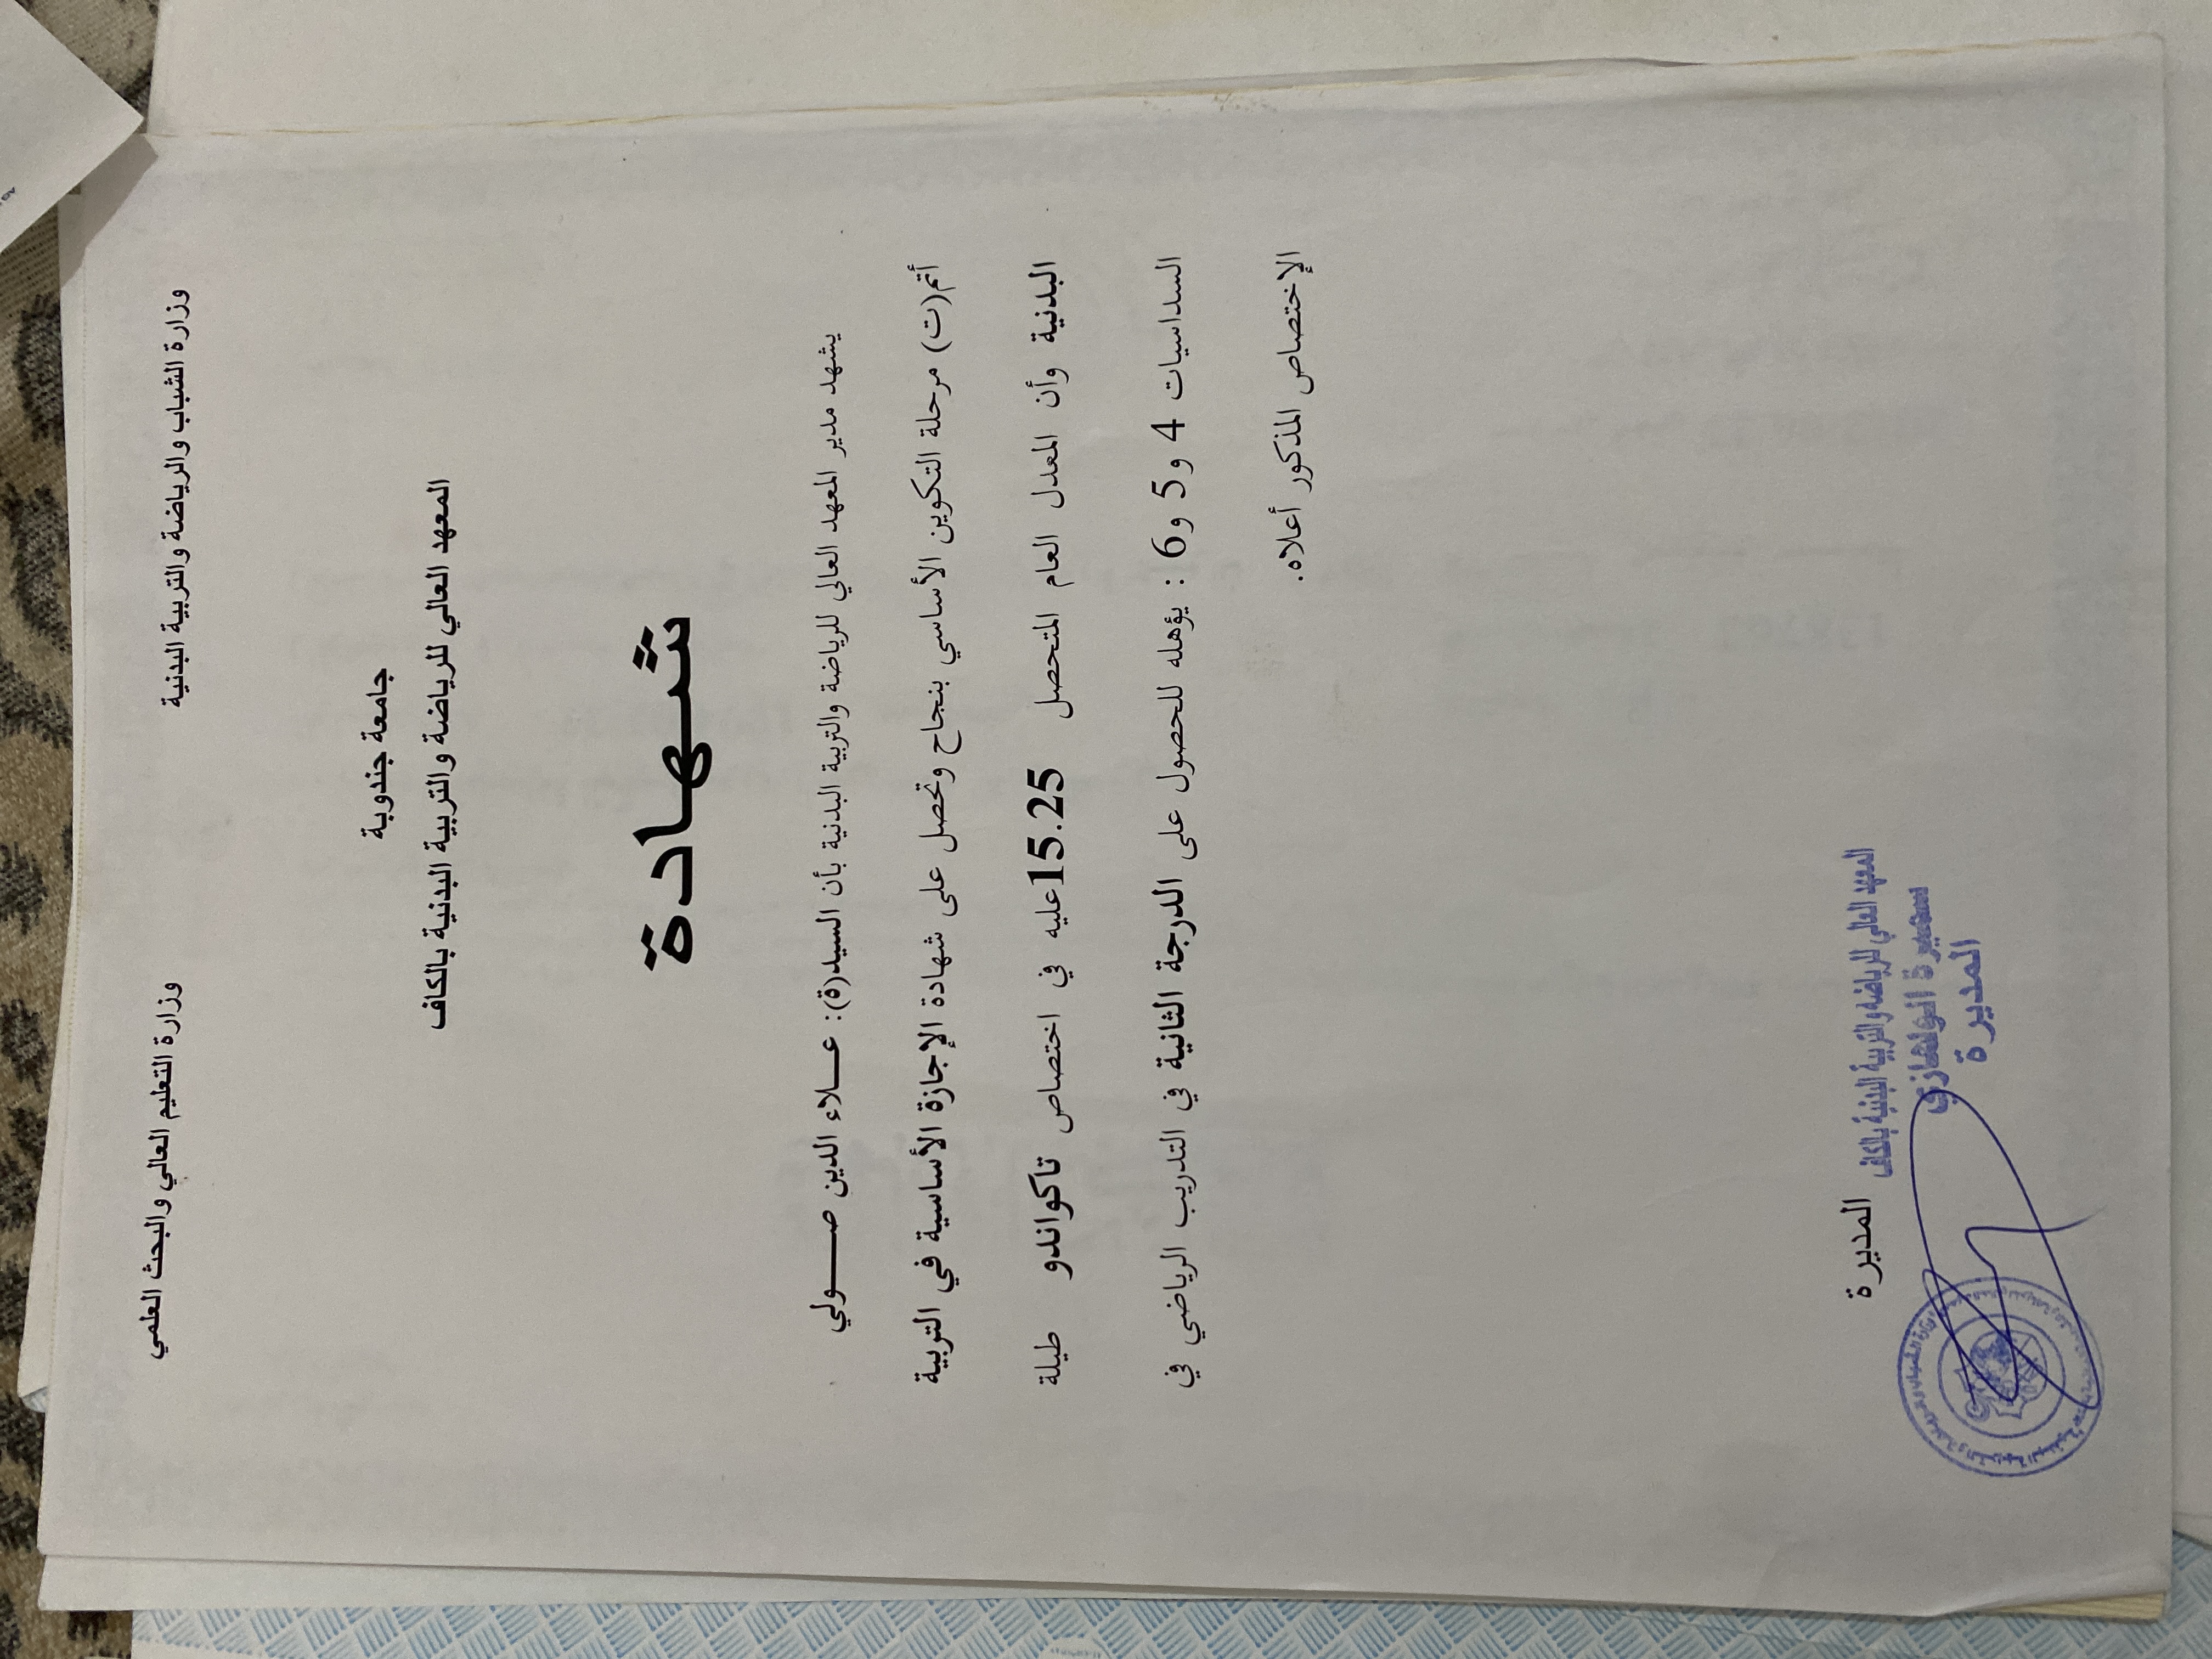 وزارة الشباب والرياضة والتربية البدنية
وزارة التعليم العالي والبحث العلمي
جامعة جندوبة
المعهد العالي للرياضة والتربية البدنية بالكاف
شهادة
يشهد مدير المعهد العالي للرياضة والتربية البدنية بأن السيد(ة): عـــلاء الدين صـــولي
أتم(ت) مرحلة التكوين الأساسي بنجاح وتحصل على شهادة الإجازة الأساسية في التربية
البدنية وأن المعدل العام المتحصل عليه 15.25 في اختصاص تاكواندو طيلة
السداسيات 4 و5 و6 : يؤهله للحصول على الدرجة الثانية في التدريب الرياضي في
الإختصاص المذكور أعلاه.
المديرة
المعهد العالي للرياضة والتربية البدنية بالكاف
المديرة